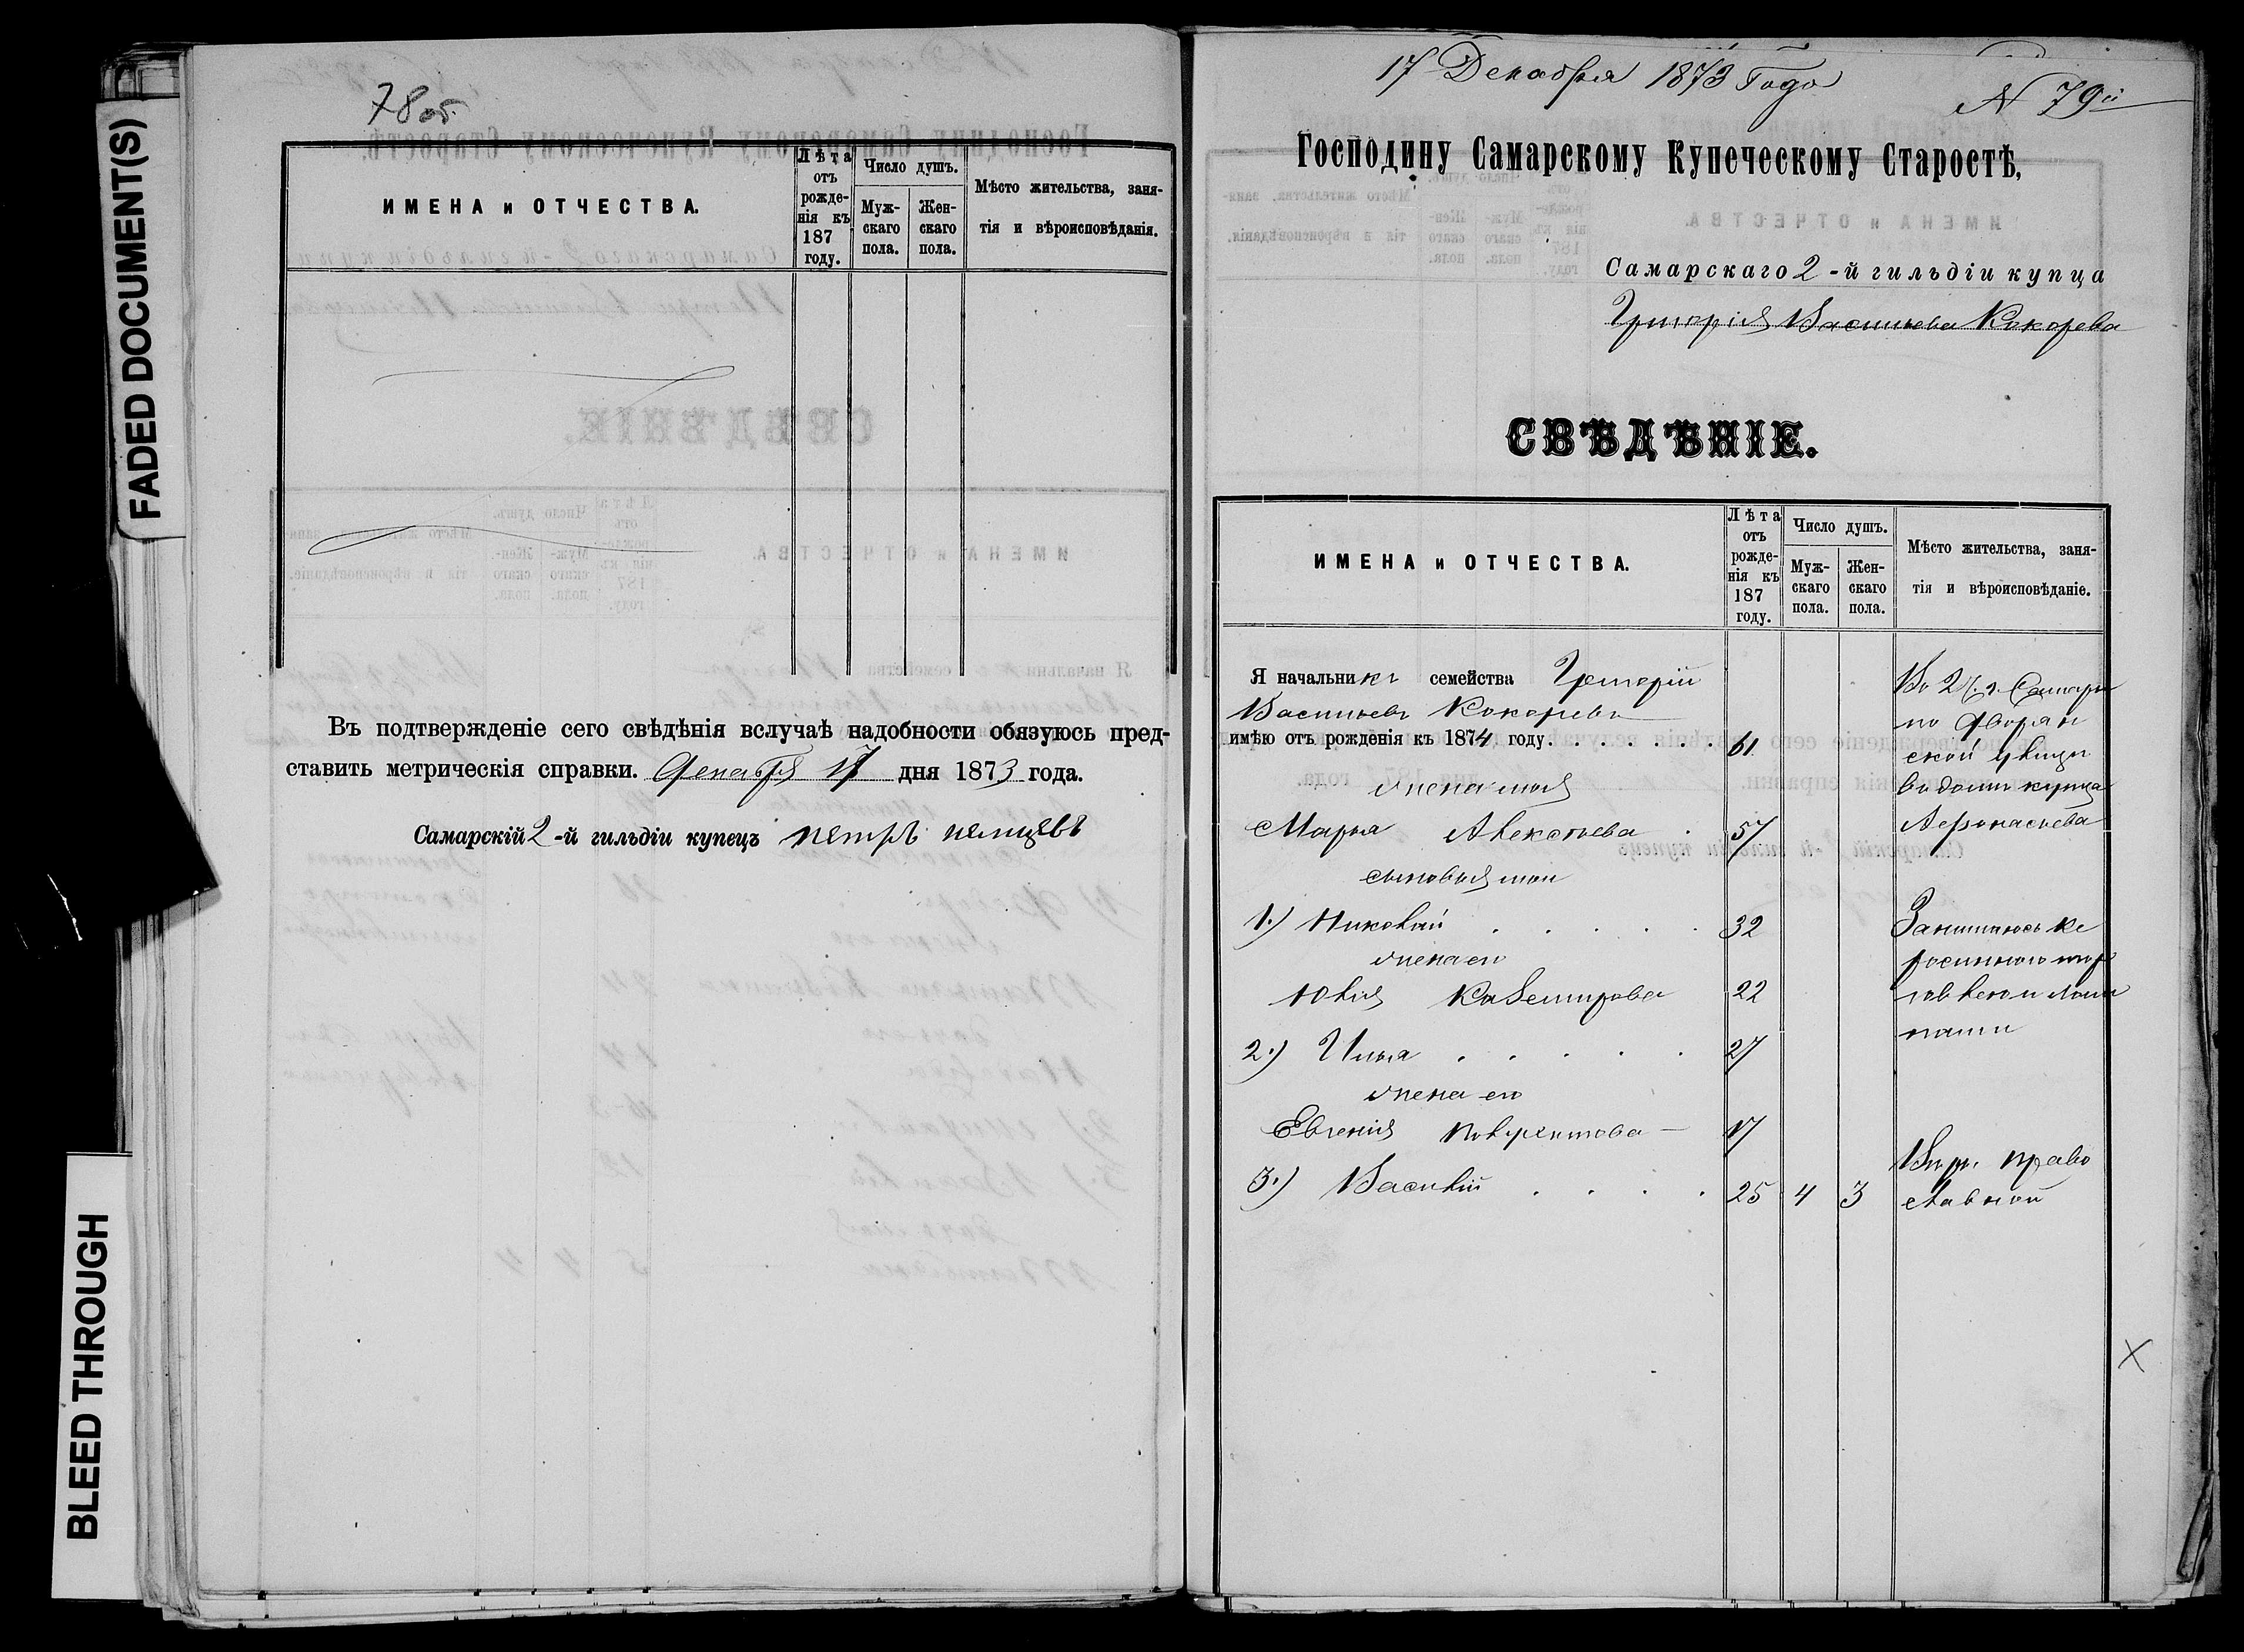 FADED DOCUMENT(S)
BLEED THROUGH
78 об.
ИМЕНА и ОТЧЕСТВА.
Лѣта отъ рожденія къ 187 году.
Число душъ.
Мужскаго пола.
Женскаго пола.
Мѣсто жительства, заня-
тія и вѣроисповѣданія.
Въ подтвержденіе сего свѣдѣнія вслучаѣ надобности обязуюсь пред-
ставить метрическія справки. Декабря 17 дня 1873 года.
Самарскій 2-й гильдіи купецъ петръ немцевъ
17 Декабря 1873 Года
N 79й
Господину Самарскому Купеческому Старостѣ,
Самарскаго 2-й гильдіи купца
Григорія Васильева Кокорева
СВѢДѢНІЕ.
ИМЕНА и ОТЧЕСТВА.
Лѣта отъ рожденія къ 187 году.
Число душъ.
Мужскаго пола.
Женскаго пола.
Мѣсто жительства, заня-
тія и вѣроисповѣданіе.
Я начальникъ семейства Григорій
Васильевъ Кокоревъ
имѣю отъ рожденія къ 1874 году. . . . . . . 61
жена моя
Марья Алексѣева . 57
сыновья мои
1.) Николай . . . . . 32
жена его
Юлія Казимирова 22
2.) Илья . . . . . 27
жена его
Евгенія 17
3.) Василій . . . . 25 4 3
Во 2 Ч. г. Самары
по Дворян
ской улицы
въ доме купца
Афонасьева
Занимаюсь ке
росинною тор
говлею и
Вѣры право
славной
X